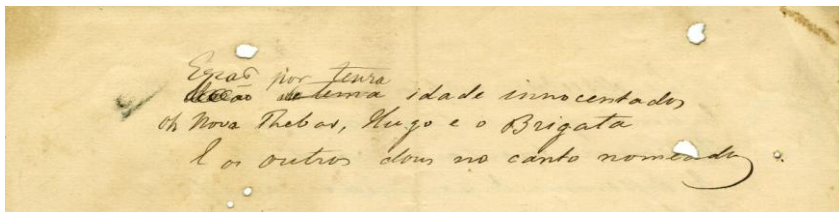 Eraõ por tenra
idade innocentados
Oh Nova Thebas, Hugo e o Brigata
E os outros dous no canto nomeados